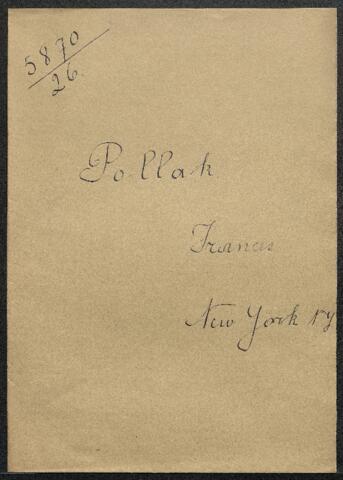 5870
26.
Pollak
Francis
New York NY